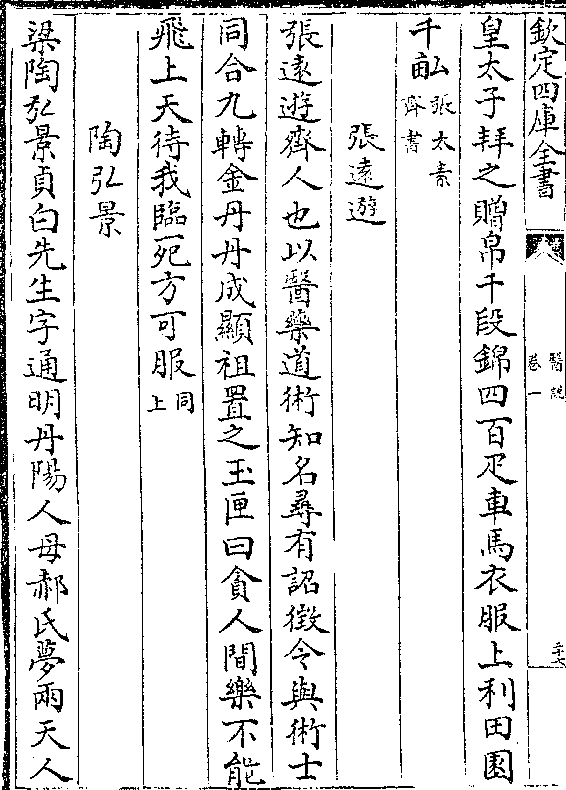 欽定四庫全書
醫說
卷一
皇太子拜之贈帛千段錦四百疋車馬衣服上利田園
千畝張太素
齊書
張遠遊
張遠遊齊人也以醫藥道術知名尋有詔徵令與術士
同合九轉金丹丹成顯祖置之玉匣曰貪人間樂不能
飛上天待我臨死方可服同
上
陶弘景
梁陶弘景貞白先生字通明丹陽人母郝氏夢兩天人